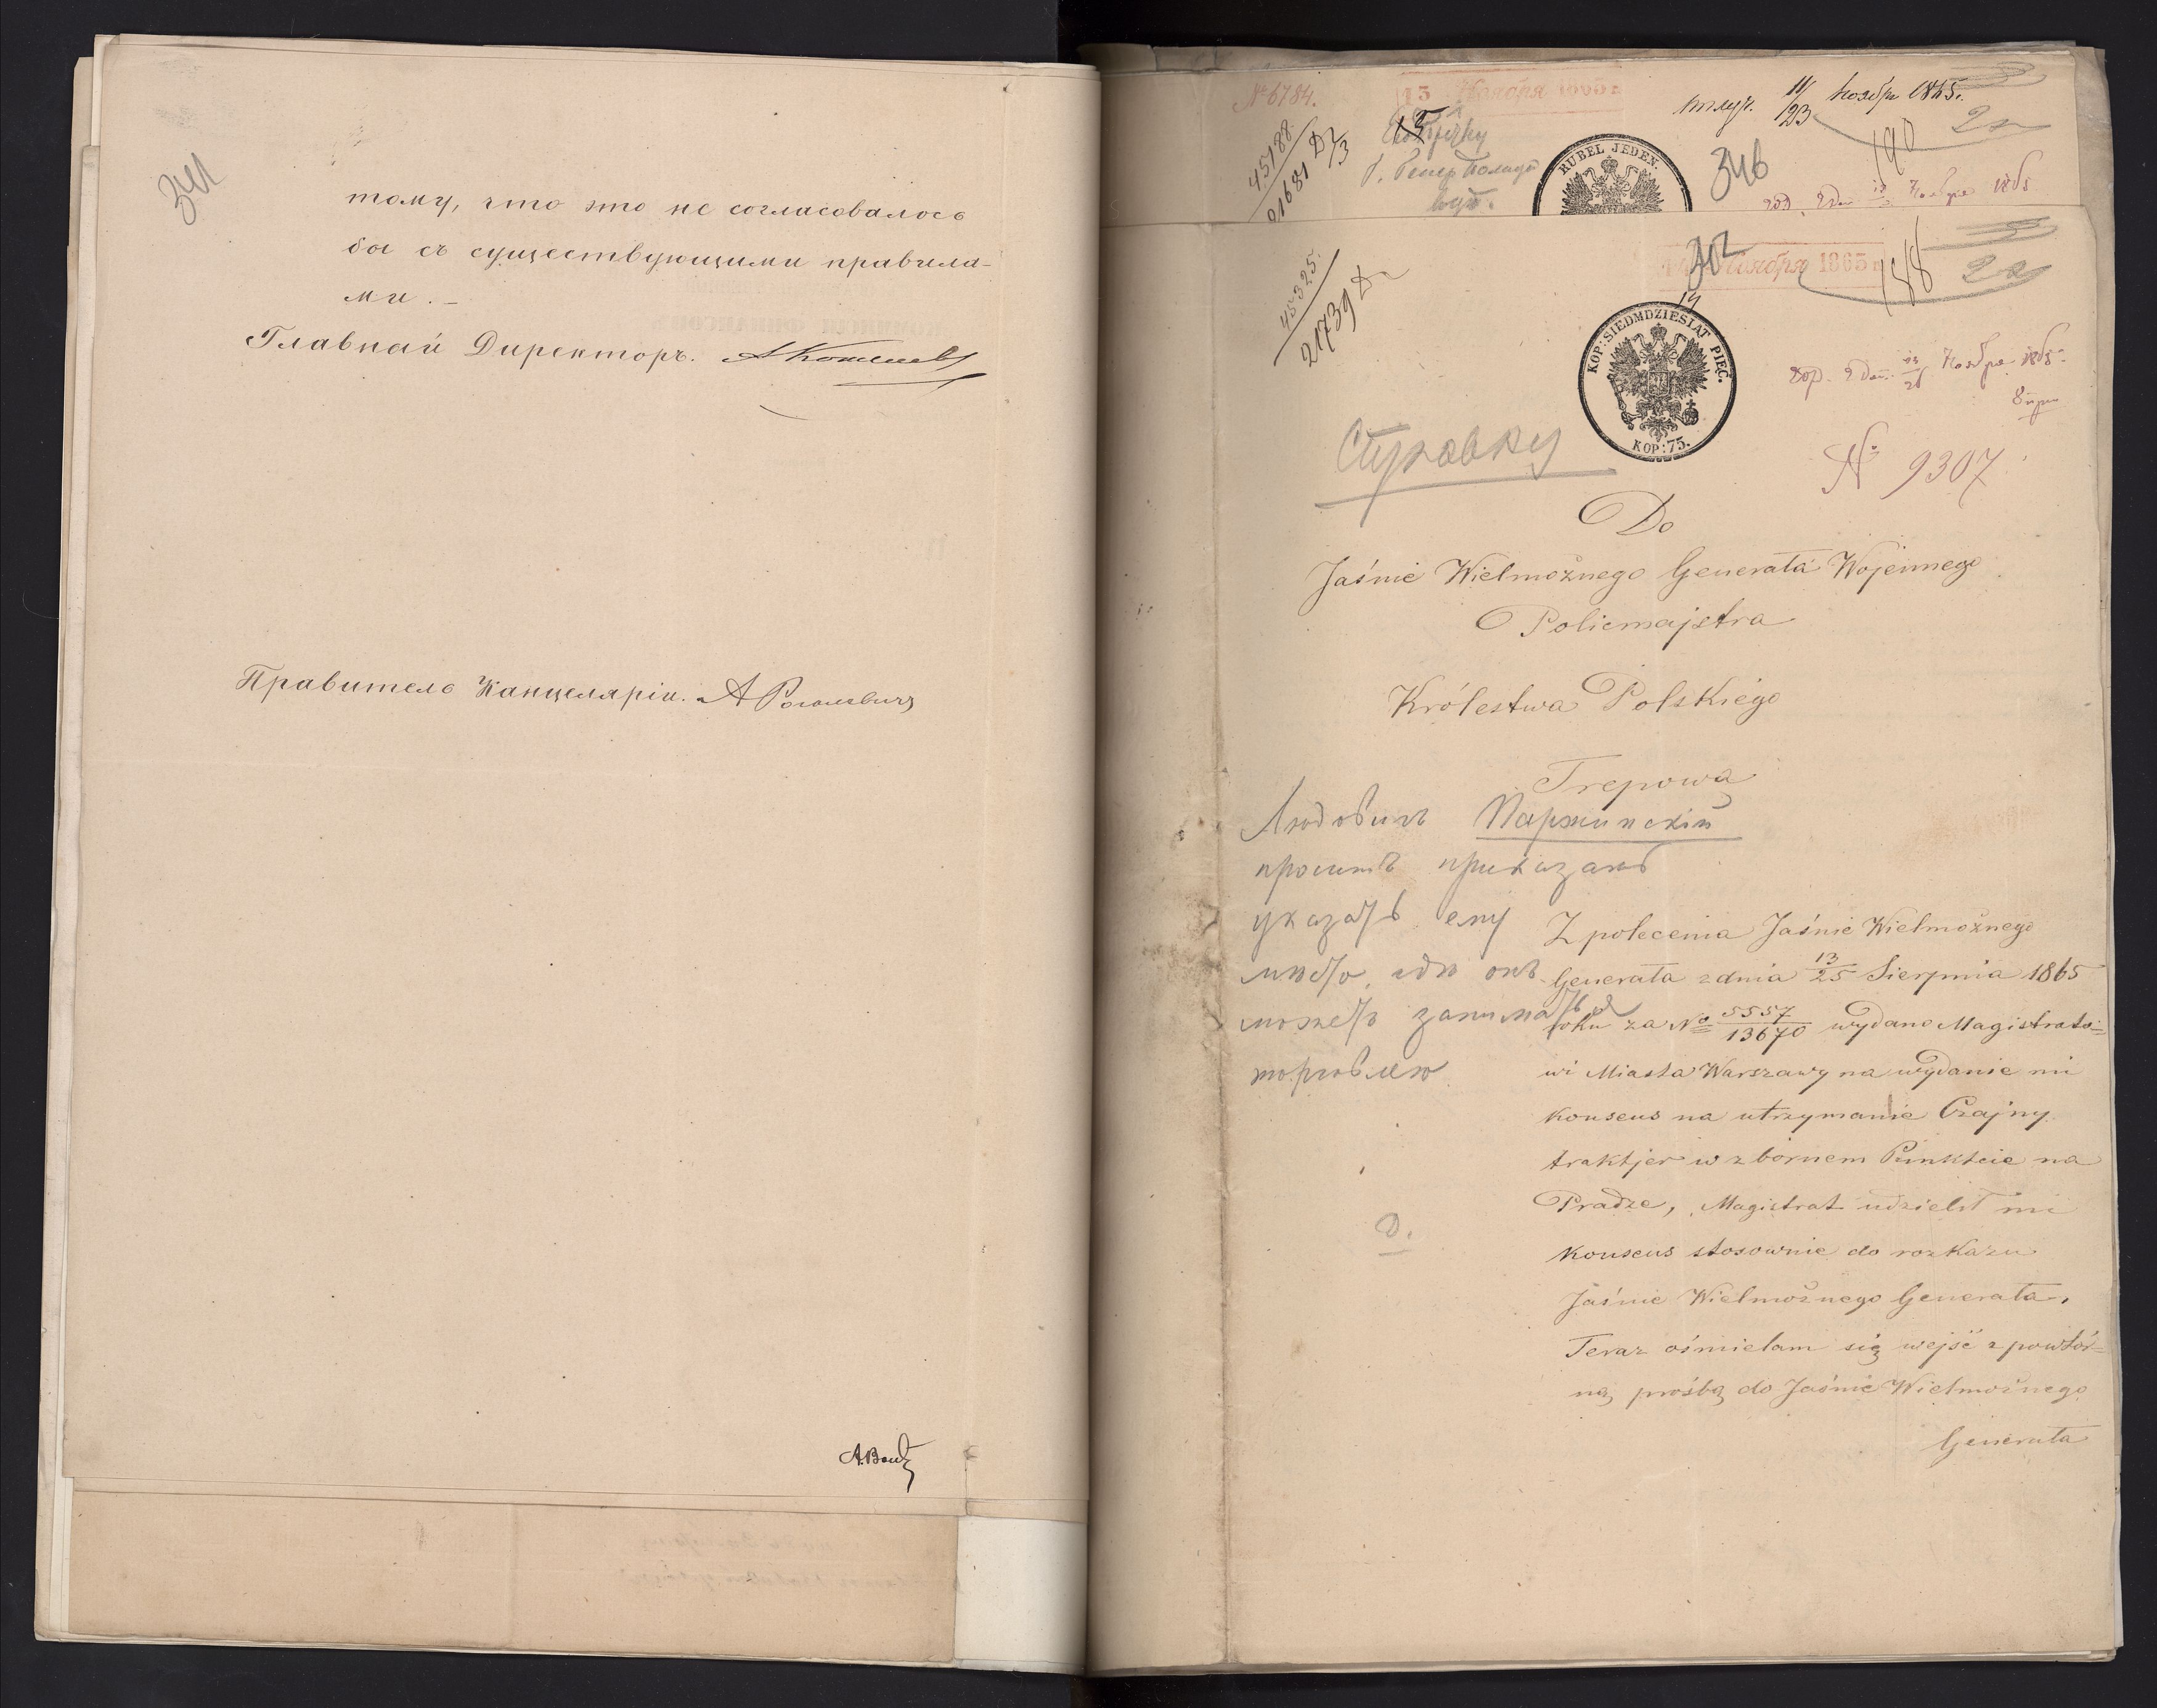 341
тому, что это не согласовалось
бы съ существующими правила-
ми. –
Главный Директоръ. АКошелев
Правитель Канцеляріи. А
№ 6784.
13 Ноября 1865 г.
получ. 11/23 Ноября 1865.
45188.
21681
346
190
RUBEL JEDEN.
Ноября 1865
45325.
21739
342
Ноября 1865 г.
188
KOP: SIEDMDZIESIAT PIĘC.
KOP: 75.
Ноября 1865
Справку
№ 9307
Do
Jaśnie Wielmożnego Generała Wojennego
Policmajstra
Królestwa Polskiego
Trepowa
Людовикъ Паржинскій
проситъ приказать
указать ему
мѣсто, гдѣ онъ
можетъ заниматься
торговлею
Z polecenia Jaśnie Wielmożnego
Generała z dnia 13/25 Sierpnia 1865
roku za No 5557/13670 wydano Magistrato=
wi Miasta Warszawy na wydanie mi
konsens na utrzymanie Czajny
traktjer w zbornem Punkcie na
Pradze, Magistrat udzielił mi
konsens stosownie do rozkazu
Jaśnie Wielmożnego Generała,
Teraz ośmielam się wejść z powtór=
ną prośbą do Jaśnie Wielmożnego
Generała